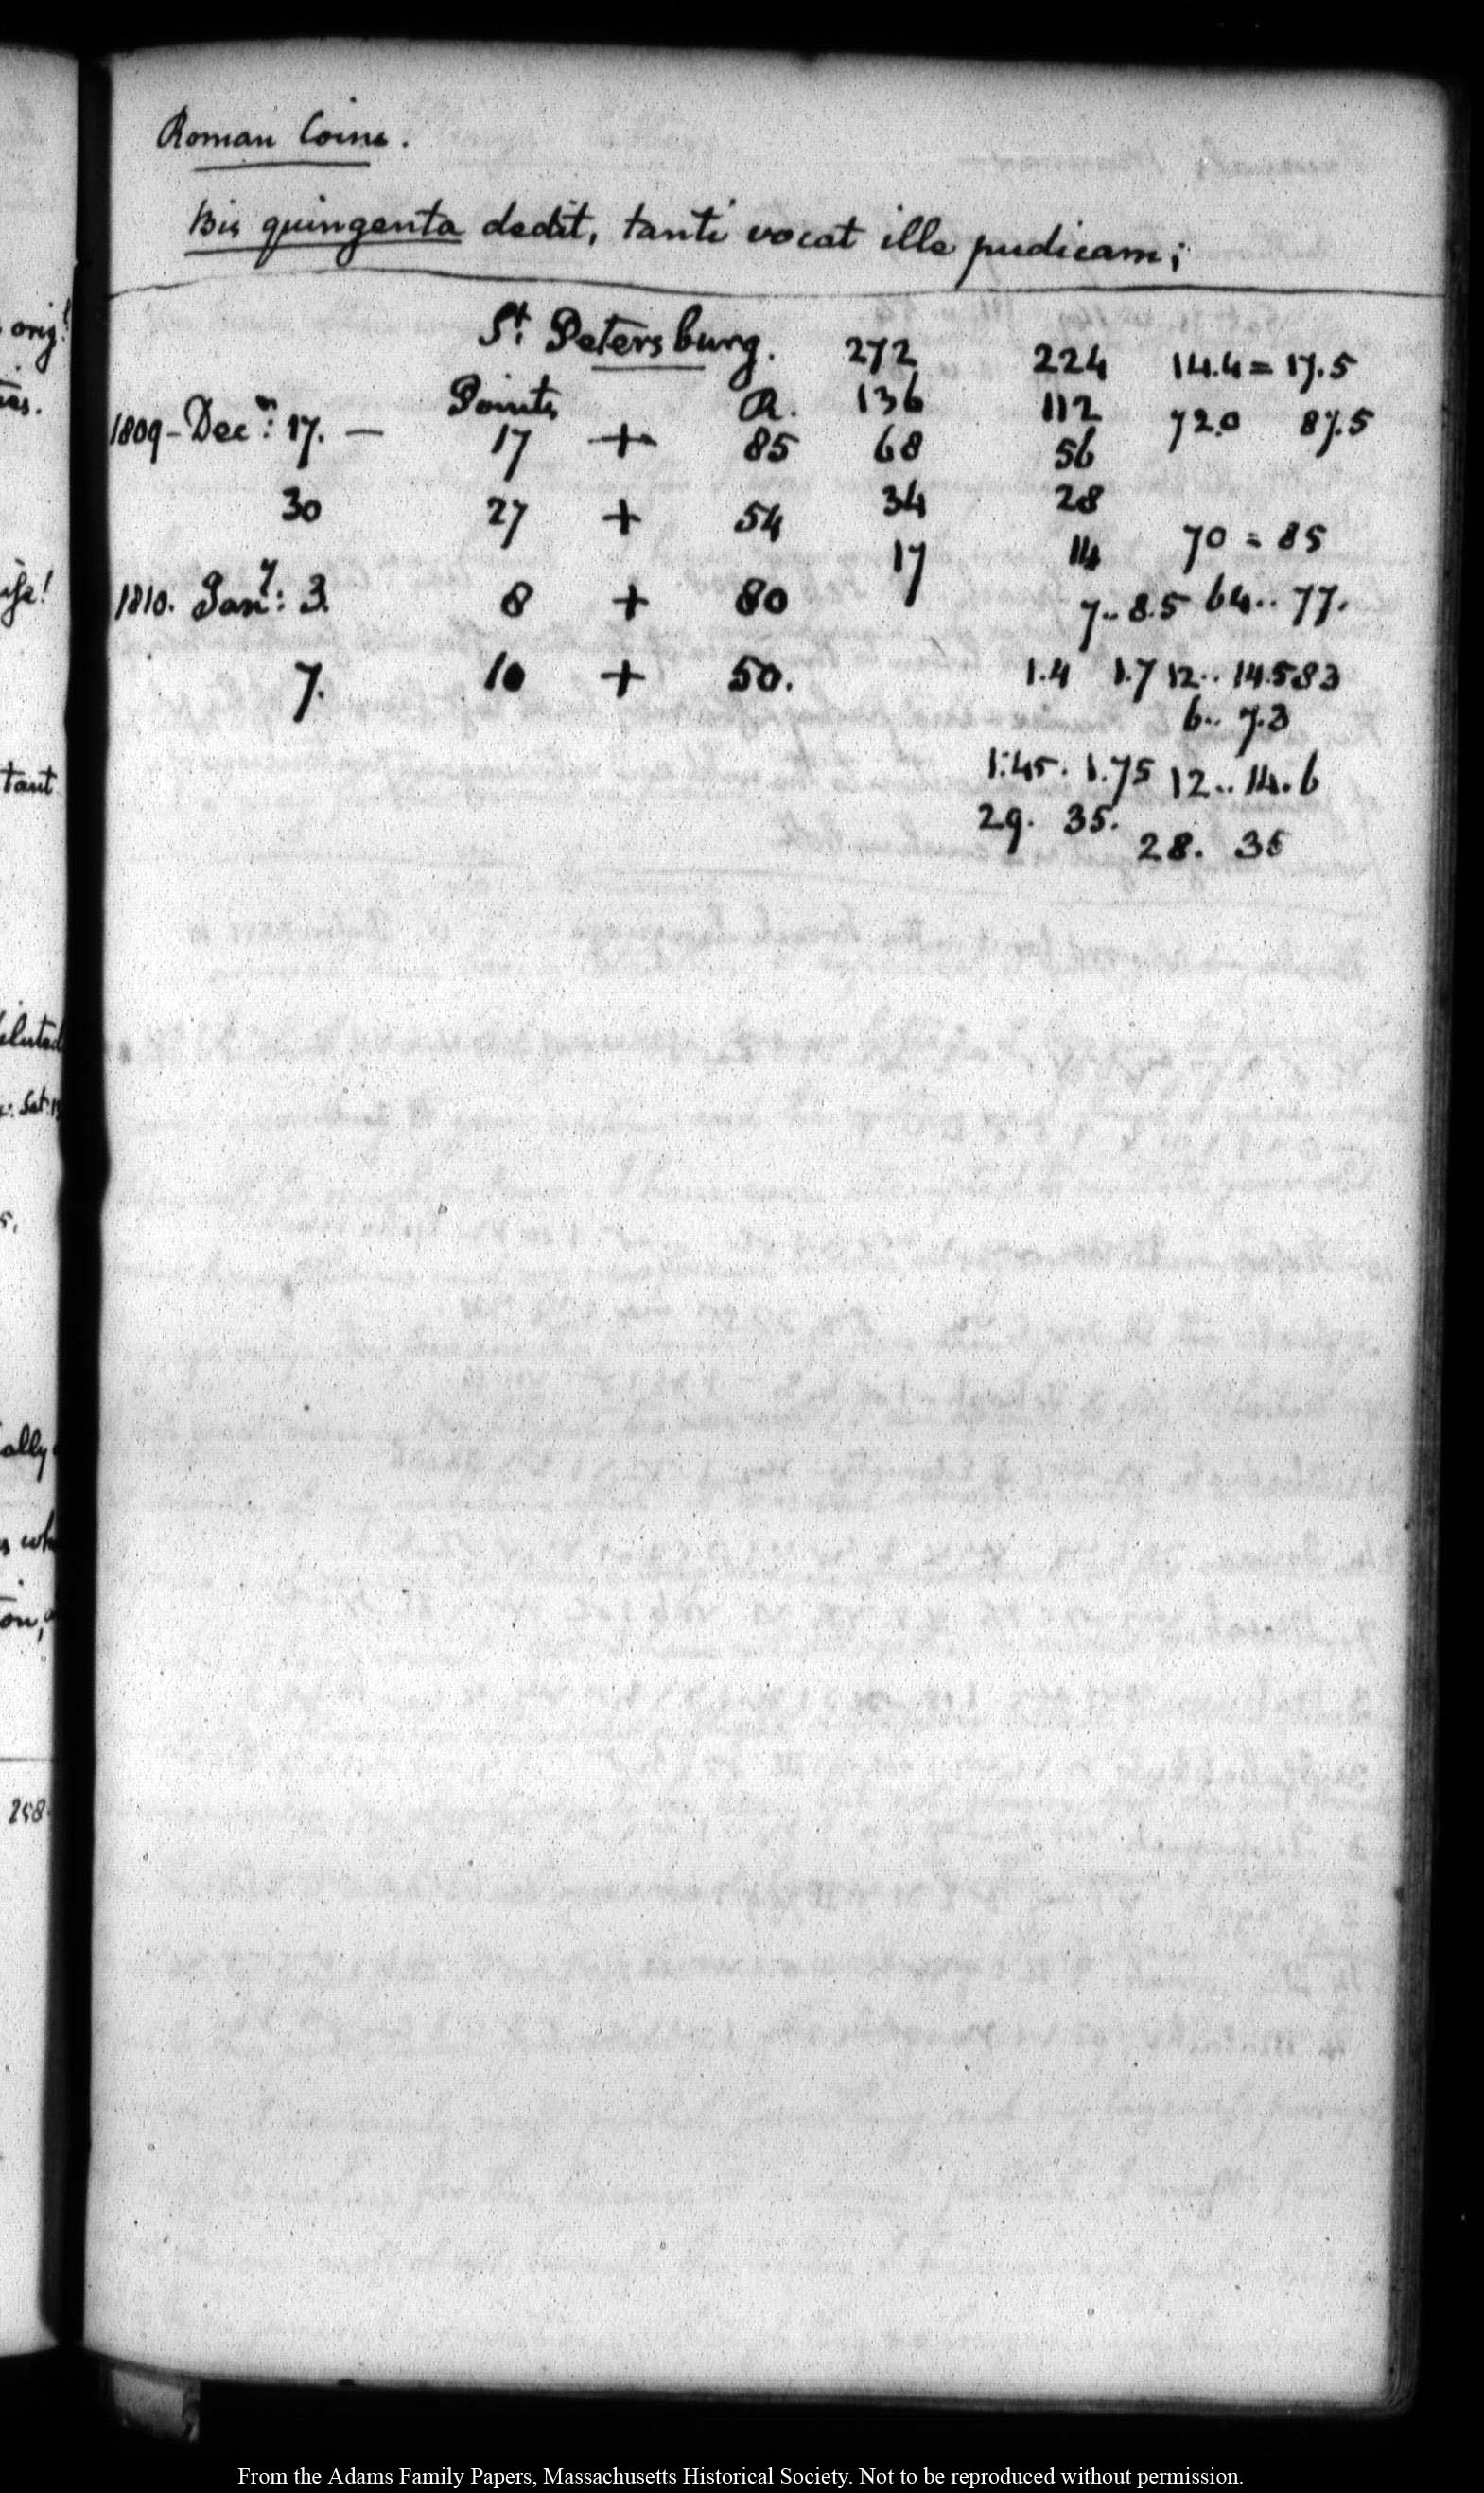 Roman Coins.
Bis quingenta dedit, tanti vocat ille pudicam;
St. Petersburg. 272 224 14.4 = 17.5
Points R. 136 112 72.0 87.5
1809 - Decr: 17. — 17 + 85 68 56
30 27 + 54 34 28
17 14 70 = 85
1810. Jany: 3. 8 + 80 7.. 8.5 64.. 77.
7. 10 + 50. 1.4 1.7 12.. 14.583
6.. 7.3
1.45. 1.75 12.. 14.6
29. 35.
28. 35
orig!
tant
Sat:
ally
258
From the Adams Family Papers, Massachusetts Historical Society. Not to be reproduced without permission.